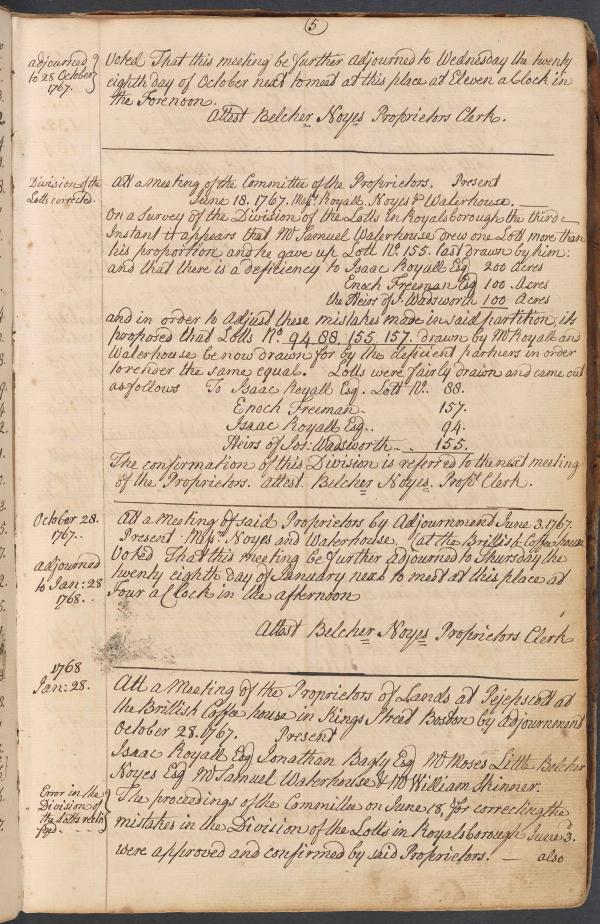 5
adjourned
to 28 October
1767.
Voted That this meeting be further adjourned to Wednesday the twenty
eighth day of October next to meet at this place at Eleven a Clock in
the Forenoon.
Attest Belcher Noyes Proprietors Clerk.
Division of the
Lotts corrected.
Att a meeting of the Committee of the Proprietors. Present
June 18. 1767. Messrs Royall, Noyes & Waterhouse.
On a Survey of the Division of the Lotts in Royalsborough the third
Instant it appears that Mr Samuel Waterhouse drew one Lott more than
his proportion, and he gave up Lott No. 155. last drawn by him:
and that there is a deficiency to Isaac Royall Esq 200 Acres
Enoch Freeman Esq 100. Acres
the Heirs of J. Wadsworth 100 Acres
and in order to Adjust these mistakes made in said partition, its
proposed that Lotts No. 94. 88. 155. 157. drawn by Mr Royall and
Waterhouse be now drawn for by the deficient partners in order
to render the same equal. Lotts were fairly drawn and came out
as follows To Isaac Royall Esq. Lott No. 88.
Enoch Freeman 157.
Isaac Royall Esq. 94.
Heirs of Jos: Wadsworth 155.
The confirmation of this Division is referred to the next meeting
of the Proprietors. attest. Belcher Noyes. Propt Clerk.
October 28.
1767.
adjourned
to Jan: 28
1768.
Att a Meeting of said Proprietors by Adjournment June 3. 1767.
Present Messrs Noyes and Waterhouse, (at the Brittish Coffee house
Voted That this meeting be further adjourned to Thursday the
twenty eighth day of January next to meet at this place at
Four a Clock in the afternoon
Attest Belcher Noyes Proprietors Clerk
1768
Jan: 28.
Att a Meeting of the Proprietors of Lands at Pejepscott at
the Brittish Coffee house in Kings Street Boston by Adjournment
October 28. 1767. Present
Isaac Royall Esq Jonathan Bagly Esq Mr Moses Little Belcher
Noyes Esq Mr Samuel Waterhouse & Mr William Skinner.
Error in the
Division of
the Lotts
The proceedings of the Committee on June 18, for correcting the
mistakes in the Division of the Lotts in Royalsborough June 3.
were approved and confirmed by said Proprietors. — also